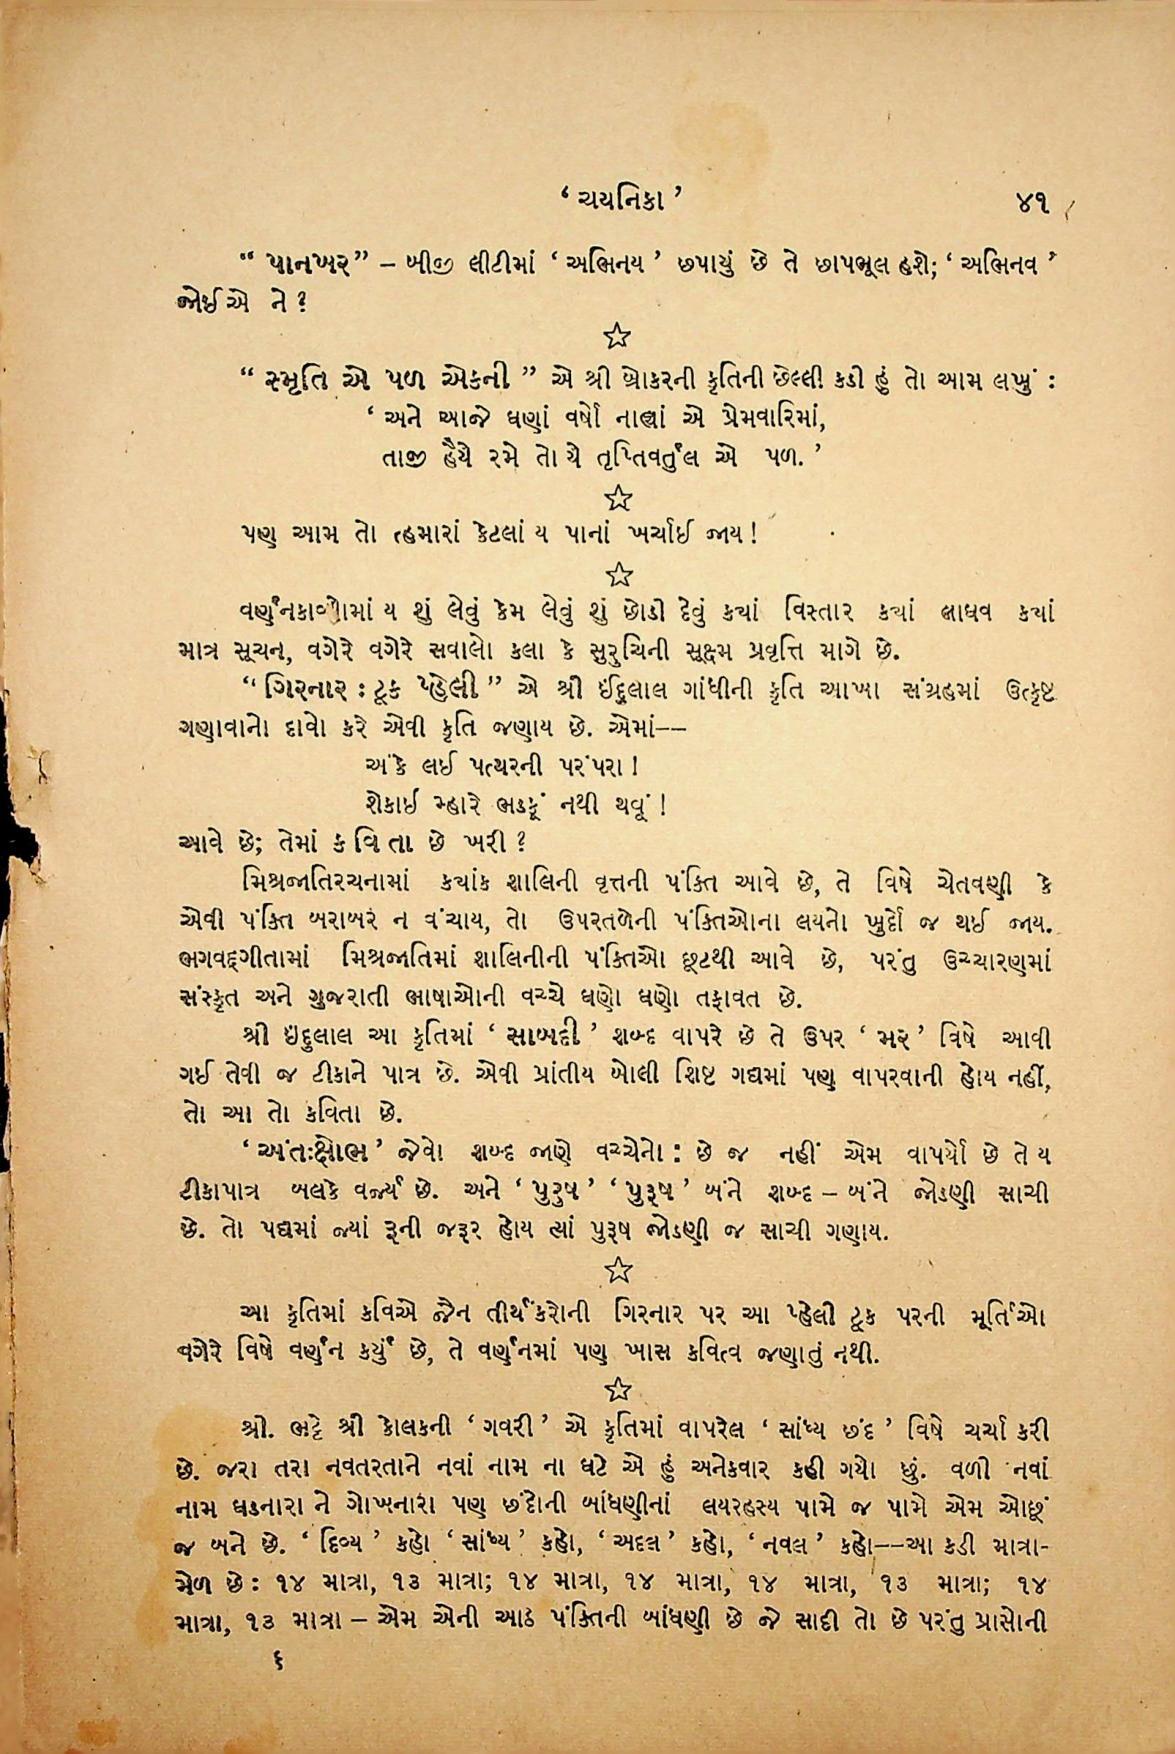 ‘ ચયનિકા ’ ૪૧
“ પાનખર” – બીજી લીટીમાં ‘ અભિનય ’ છપાયું છે તે છાપભૂલ હશે; ‘ અભિનવ ’
જોઈએ ને ?
☆
“ સ્મૃતિ એ પળ એકની ” એ શ્રી બ્રોકરની કૃતિની છેલ્લી કડી હું તો આમ લખું :
‘ અને આજે ઘણાં વર્ષો નાહ્યાં એ પ્રેમવારિમાં,
તાજી હૈયે રમે તો યે તૃપ્તિવર્તુલ એ પળ. ’
☆
પણ આમ તો ત્હમારાં કેટલાં ય પાનાં ખર્ચાઈ જાય !
☆
વર્ણનકાવ્યોમાં ય શું લેવું કેમ લેવું શું છોડી દેવું ક્યાં વિસ્તાર ક્યાં લાઘવ ક્યાં
માત્ર સૂચન, વગેરે વગેરે સવાલો કલા કે સુરુચિની સૂક્ષ્મ પ્રવૃત્તિ માગે છે.
“ ગિરનાર : ટૂક પ્હેલી ” એ શ્રી ઈંદુલાલ ગાંધીની કૃતિ આખા સંગ્રહમાં ઉત્કૃષ્ટ
ગણાવાનો દાવો કરે એવી કૃતિ જણાય છે. એમાં--
અંકે લઈ પત્થરની પરંપરા !
શેકાઈ મ્હારે ભડકૂં નથી થવૂં !
આવે છે; તેમાં ક વિ તા છે ખરી ?
મિશ્રજાતિરચનામાં ક્યાંક શાલિની વૃત્તની પંક્તિ આવે છે, તે વિષે ચેતવણી કે
એવી પંક્તિ બરાબર ન વંચાય, તો ઉપરતળેની પંક્તિઓના લયનો ખુર્દો જ થઈ જાય.
ભગવદ્ગીતામાં મિશ્રજાતિમાં શાલિનીની પંક્તિઓ છૂટથી આવે છે, પરંતુ ઉચ્ચારણમાં
સંસ્કૃત અને ગુજરાતી ભાષાઓની વચ્ચે ઘણો ઘણો તફાવત છે.
શ્રી ઇંદુલાલ આ કૃતિમાં ‘ સાબદી ’ શબ્દ વાપરે છે તે ઉપર ‘ મર ’ વિષે આવી
ગઈ તેવી જ ટીકાને પાત્ર છે. એવી પ્રાંતીય બોલી શિષ્ટ ગદ્યમાં પણ વાપરવાની હોય નહીં,
તો આ તો કવિતા છે.
‘ અંતઃક્ષોભ ’ જેવો શબ્દ જાણે વચ્ચેનો : છે જ નહીં એમ વાપર્યો છે તે ય
ટીકાપાત્ર બલકે વર્જ્ય છે. અને ‘ પુરુષ ’ ‘ પુરૂષ ’ બંને શબ્દ – બંને જોડણી સાચી
છે. તો પદ્યમાં જ્યાં રૂની જરૂર હોય ત્યાં પુરૂષ જોડણી જ સાચી ગણાય.
☆
આ કૃતિમાં કવિએ જૈન તીર્થંકરોની ગિરનાર પર આ પ્હેલી ટૂક પરની મૂર્તિઓ
વગેરે વિષે વર્ણન કર્યું છે, તે વર્ણનમાં પણ ખાસ કવિત્વ જણાતું નથી.
☆
શ્રી. ભટ્ટે શ્રી કોલકની ‘ ગવરી ’ એ કૃતિમાં વાપરેલ ‘ સાંધ્ય છંદ ’ વિષે ચર્ચા કરી
છે. જરા તરા નવતરતાને નવાં નામ ના ઘટે એ હું અનેકવાર કહી ગયો છું. વળી નવાં
નામ ઘડનારા ને ગોખનારા પણ છંદોની બાંધણીનાં લયરહસ્ય પામે જ પામે એમ ઓછૂં
જ બને છે. ‘ દિવ્ય ’ કહો ‘ સાંધ્ય ’ કહો, ‘ અદલ ’ કહો, ‘ નવલ ’ કહો--આ કડી માત્રા-
મેળ છે : ૧૪ માત્રા, ૧૩ માત્રા; ૧૪ માત્રા, ૧૪ માત્રા, ૧૪ માત્રા, ૧૩ માત્રા; ૧૪
માત્રા, ૧૩ માત્રા – એમ એની આઠે પંક્તિની બાંધણી છે જે સાદી તો છે પરંતુ પ્રાસોની
૬